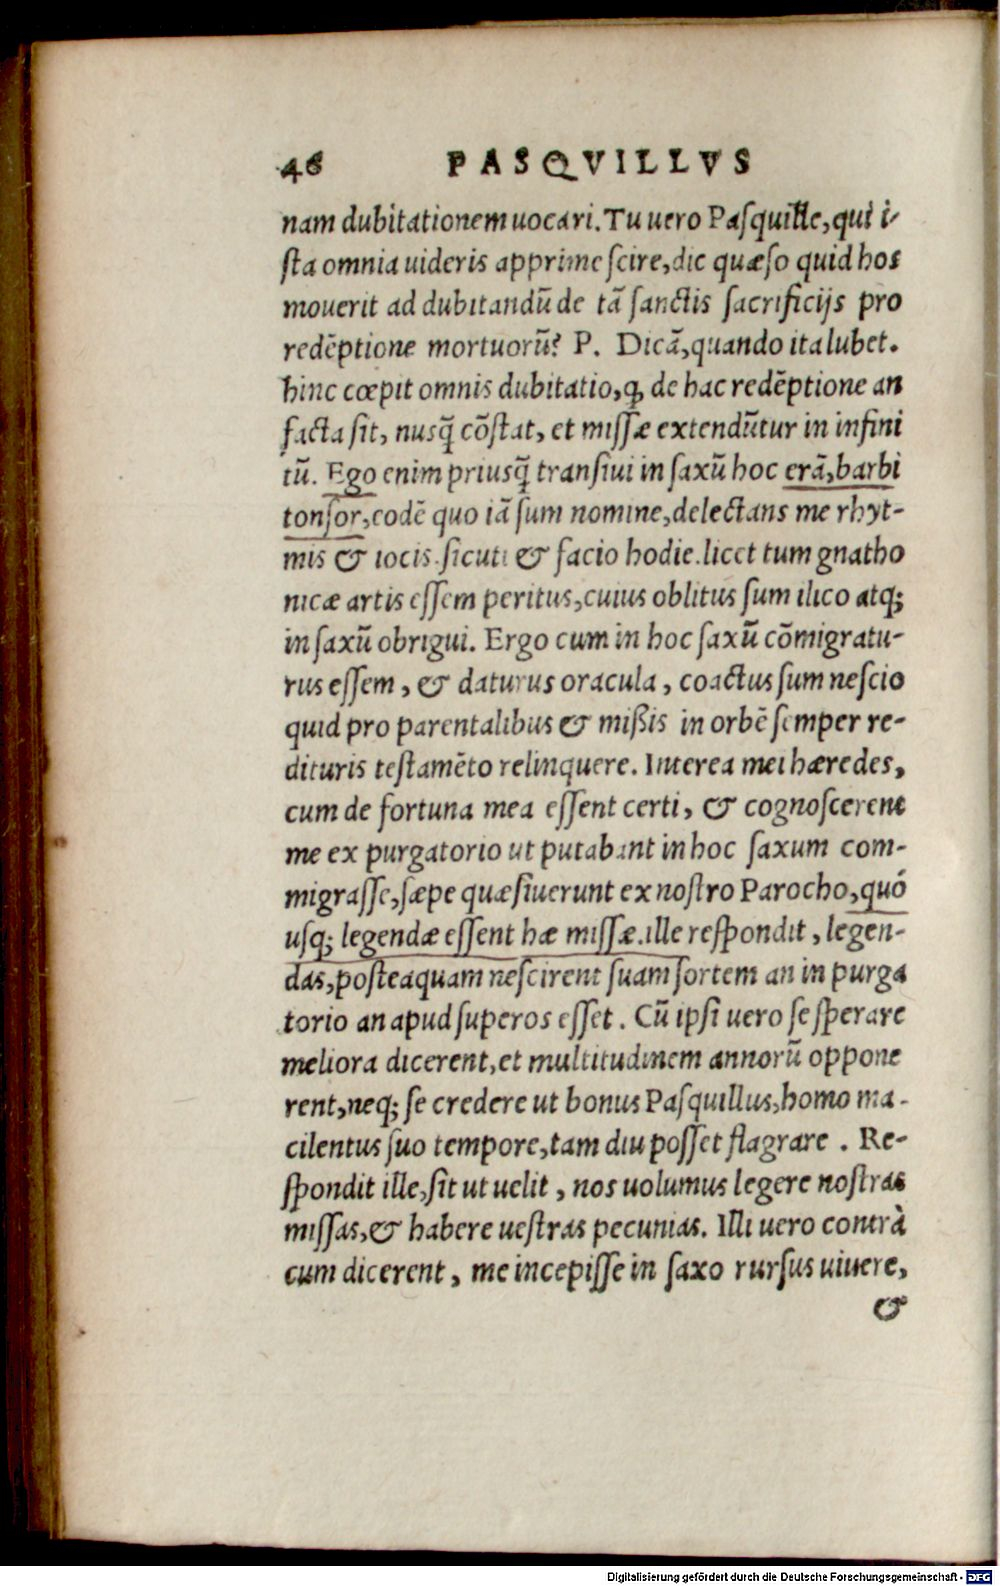 46 PASQVILLVS
nam dubitationem uocari. Tu uero Pasquille, qui i-
sta omnia uideris apprime scire, dic quæso quid hos
mouerit ad dubitandũ de tã sanctis sacrificijs pro
redẽptione mortuorũ? P. Dicã, quando ita lubet.
hinc cœpit omnis dubitatio, ꝙ de hac redẽptione an
facta sit, nusq̃ cõstat, et missæ extendũtur in infini
tũ. Ego enim priusq̃ transiui in saxũ hoc erã, barbi
tonsor, eodẽ quo iã sum nomine, delectans me rhyt-
mis & iocis sicuti & facio hodie. licet tum gnatho
nicæ artis essem peritus, cuius oblitus sum ilico atq;
in saxũ obrigui. Ergo cum in hoc saxũ cõmigratu-
rus essem, & daturus oracula, coactus sum nescio
quid pro parentalibus & mißis in orbẽ semper re-
dituris testamẽto relinquere. Interea mei hæredes,
cum de fortuna mea essent certi, & cognoscerent
me ex purgatorio ut putabant in hoc saxum com-
migrasse, sæpe quæsiuerunt ex nostro Parocho, quó
usq; legendæ essent hæ missæ. ille respondit, legen-
das, posteaquam nescirent suam sortem an in purga
torio an apud superos esset. Cũ ipsi uero se sperare
meliora dicerent, et multitudinem annorũ oppone
rent, neq; se credere ut bonus Pasquillus, homo ma-
cilentus suo tempore, tam diu posset flagrare. Re-
spondit ille, sit ut uelit, nos uolumus legere nostras
missas, & habere uestras pecunias. Illi uero contrà
cum dicerent, me incepisse in saxo rursus uiuere,
&
Digitalisierung gefördert durch die Deutsche Forschungsgemeinschaft - DFG